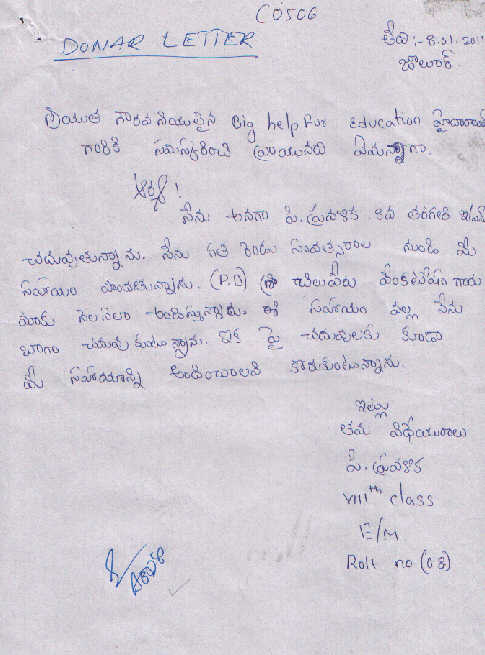 C0506
DONAR LETTER
తేది:- 8.01.201
జాలూర్.
ప్రియుత గౌరవనీయులైన Big help For Education హైదరాబాద్
గారికి నమస్కరించి వ్రాయునది ఏమనగా.
ఆర్య!
నేను అనగా పి. ప్రవళిక 8వ తరగతి
చదువుతున్నాను. నేను గత రెండు సంవత్సరాల నుండి మీ
సహాయం పొందుతున్నాను. (P.D) వెంకటేషం గారు
మాకు నెల నెలా అందిస్తున్నారు. ఈ సహాయం వల్ల నేను
బాగా చదువుకుంటున్నాను. ఇక పై చదువులకు కూడా
మీ సహాయాన్ని అందించాలని కోరుకుంటున్నాను.
ఇట్లు
తమ విధేయురాలు
పి. ప్రవళిక
VIIIth class
E/M
Roll no (08)